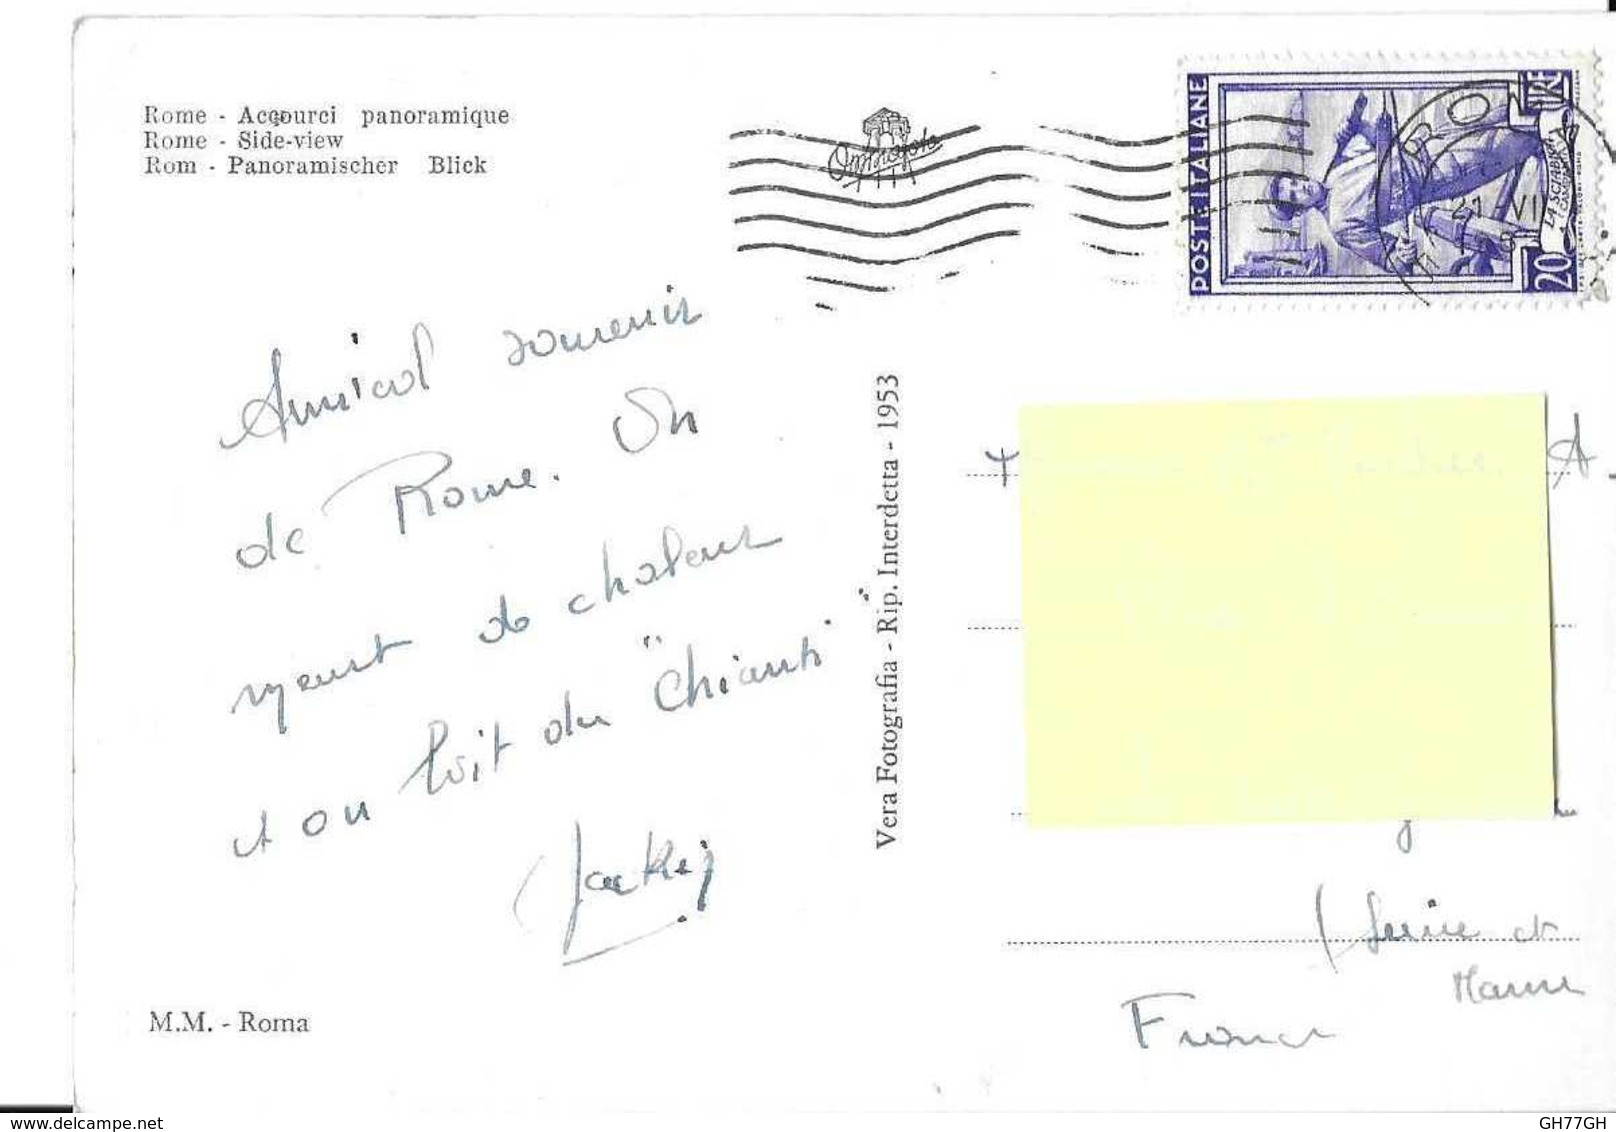 Rome - Accourci panoramique
Rome - Side-view
Rom - Panoramischer Blick
POSTE ITALIANE
LIRE
20
LA SCIABICA
ROMA
21 VII
Amical souvenir
de Rome. On
meurt de chaleur
et on boit du "Chianti"
Jacky
Vera Fotografia - Rip. Interdetta - 1953
A.
(Seine et
Marne
France
M.M. - Roma
www.delcampe.net
GH77GH